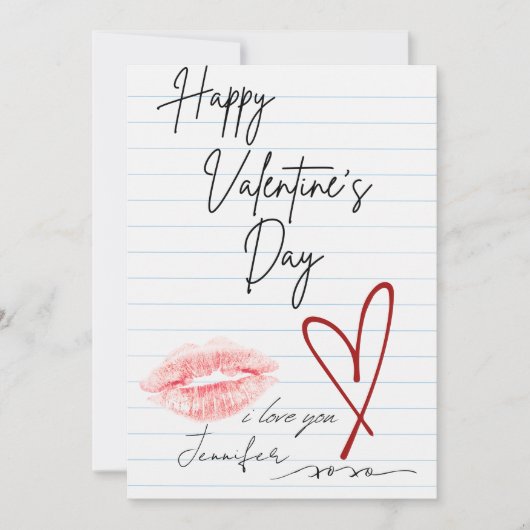 Happy
Valentine's
Day
i love you
Jennifer
xoxo